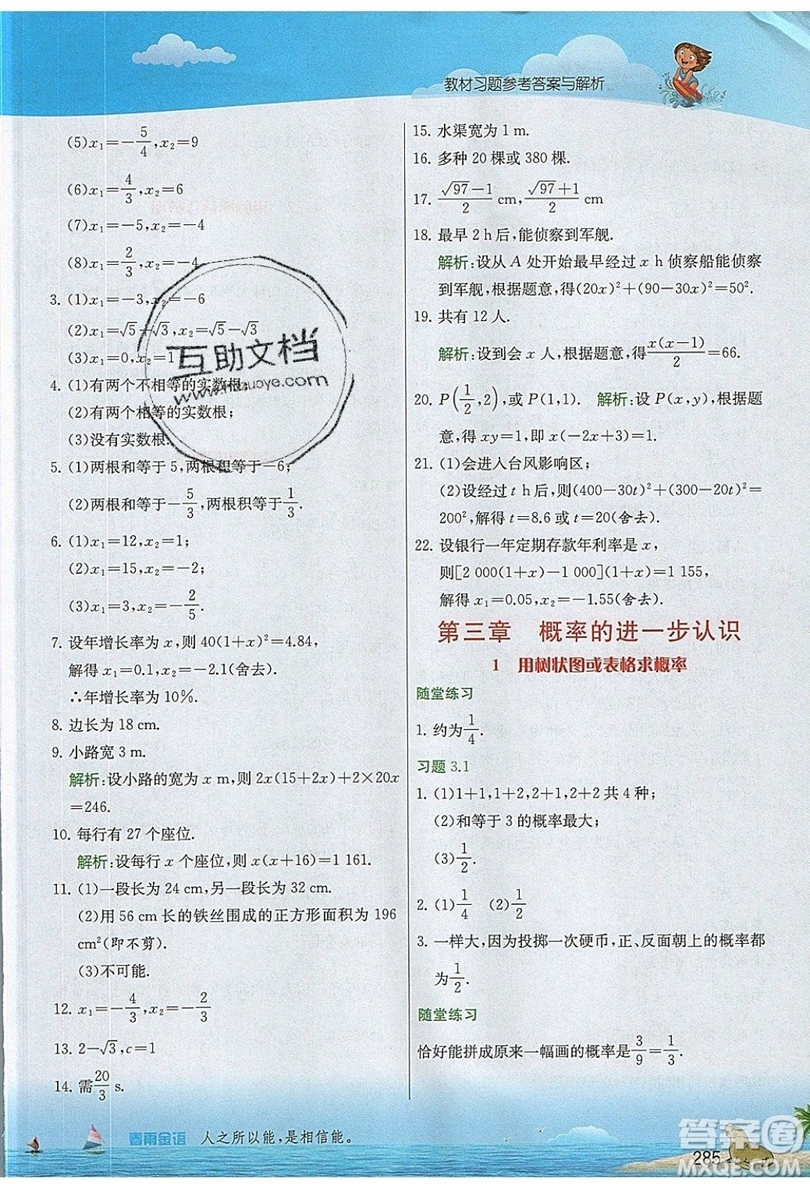 教材习题参考答案与解析
(5)x₁=-5/4,x₂=9
(6)x₁=4/3,x₂=6
(7)x₁=-5,x₂=-4
(8)x₁=2/3,x₂=-4
3. (1)x₁=-3,x₂=-6
(2)x₁=√5+√3,x₂=√5-√3
(3)x₁=0,x₂=1
4. (1)有两个不相等的实数根;
(2)有两个相等的实数根;
(3)没有实数根.
5. (1)两根和等于5,两根积等于-6;
(2)两根和等于-5/3,两根积等于1/3.
6. (1)x₁=12,x₂=1;
(2)x₁=15,x₂=-2;
(3)x₁=3,x₂=-2/5.
7. 设年增长率为x,则40(1+x)²=4.84,
解得x₁=0.1,x₂=-2.1(舍去).
∴年增长率为10%.
8. 边长为18 cm.
9. 小路宽3 m.
解析:设小路的宽为x m,则2x(15+2x)+2×20x
=246.
10. 每行有27个座位.
解析:设每行x个座位,则x(x+16)=1 161.
11. (1)一段长为24 cm,另一段长为32 cm.
(2)用56 cm长的铁丝围成的正方形面积为196
cm²(即不剪).
(3)不可能.
12. x₁=-4/3,x₂=-2/3
13. 2-√3,c=1
14. 需20/3 s.
15. 水渠宽为1 m.
16. 多种20棵或380棵.
17. (√97-1)/2 cm,(√97+1)/2 cm
18. 最早2 h后,能侦察到军舰.
解析:设从A处开始最早经过x h侦察船能侦察
到军舰,根据题意,得(20x)²+(90-30x)²=50².
19. 共有12人.
解析:设到会x人,根据题意,得x(x-1)/2=66.
20. P(1/2,2),或P(1,1). 解析:设P(x,y),根据题
意,得xy=1,即x(-2x+3)=1.
21. (1)会进入台风影响区;
(2)设经过t h后,则(400-30t)²+(300-20t)²=
200²,解得t=8.6或t=20(舍去).
22. 设银行一年定期存款年利率是x,
则[2 000(1+x)-1 000](1+x)=1 155,
解得x₁=0.05,x₂=-1.55(舍去).
第三章 概率的进一步认识
1 用树状图或表格求概率
随堂练习
1. 约为1/4.
习题3.1
1. (1)1+1,1+2,2+1,2+2共4种;
(2)和等于3的概率最大;
(3)1/2.
2. (1)1/4 (2)1/2
3. 一样大,因为投掷一次硬币,正、反面朝上的概率都
为1/2.
随堂练习
恰好能拼成原来一幅画的概率是3/9=1/3.
春雨金语 人之所以能,是相信能。
285
互助文档
www.hzuoye.com
答案圈
MXQE.COM